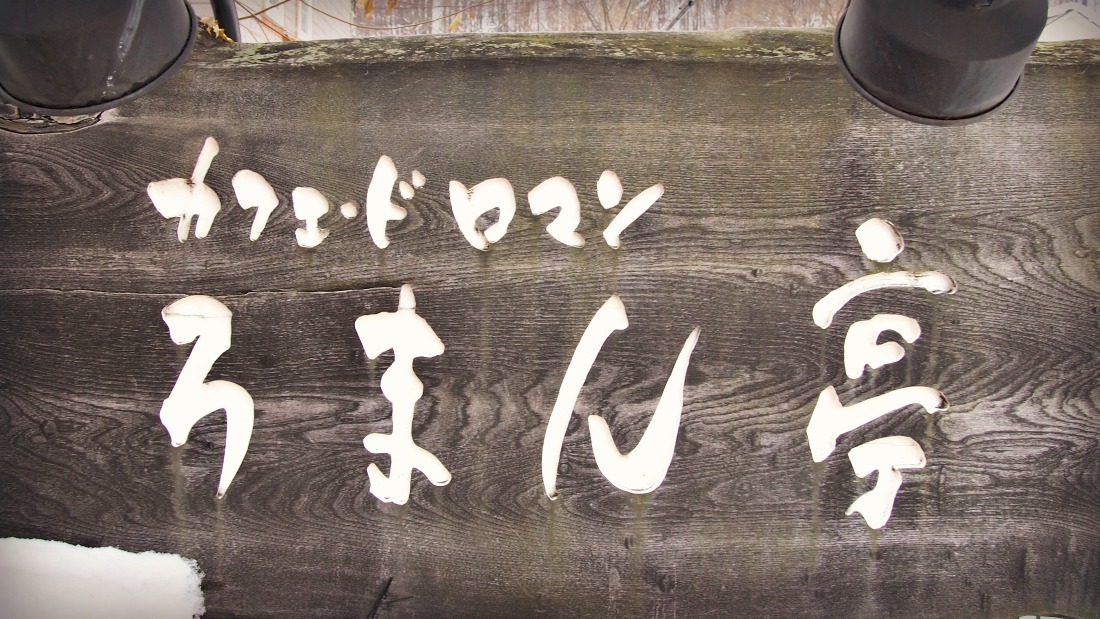 カフェ・ド ロマン
ろまん亭